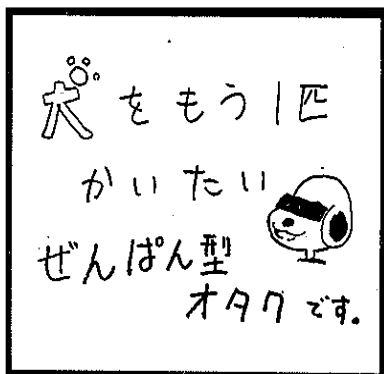 犬をもう1匹
かいたい
ぜんぱん型
オタクです。